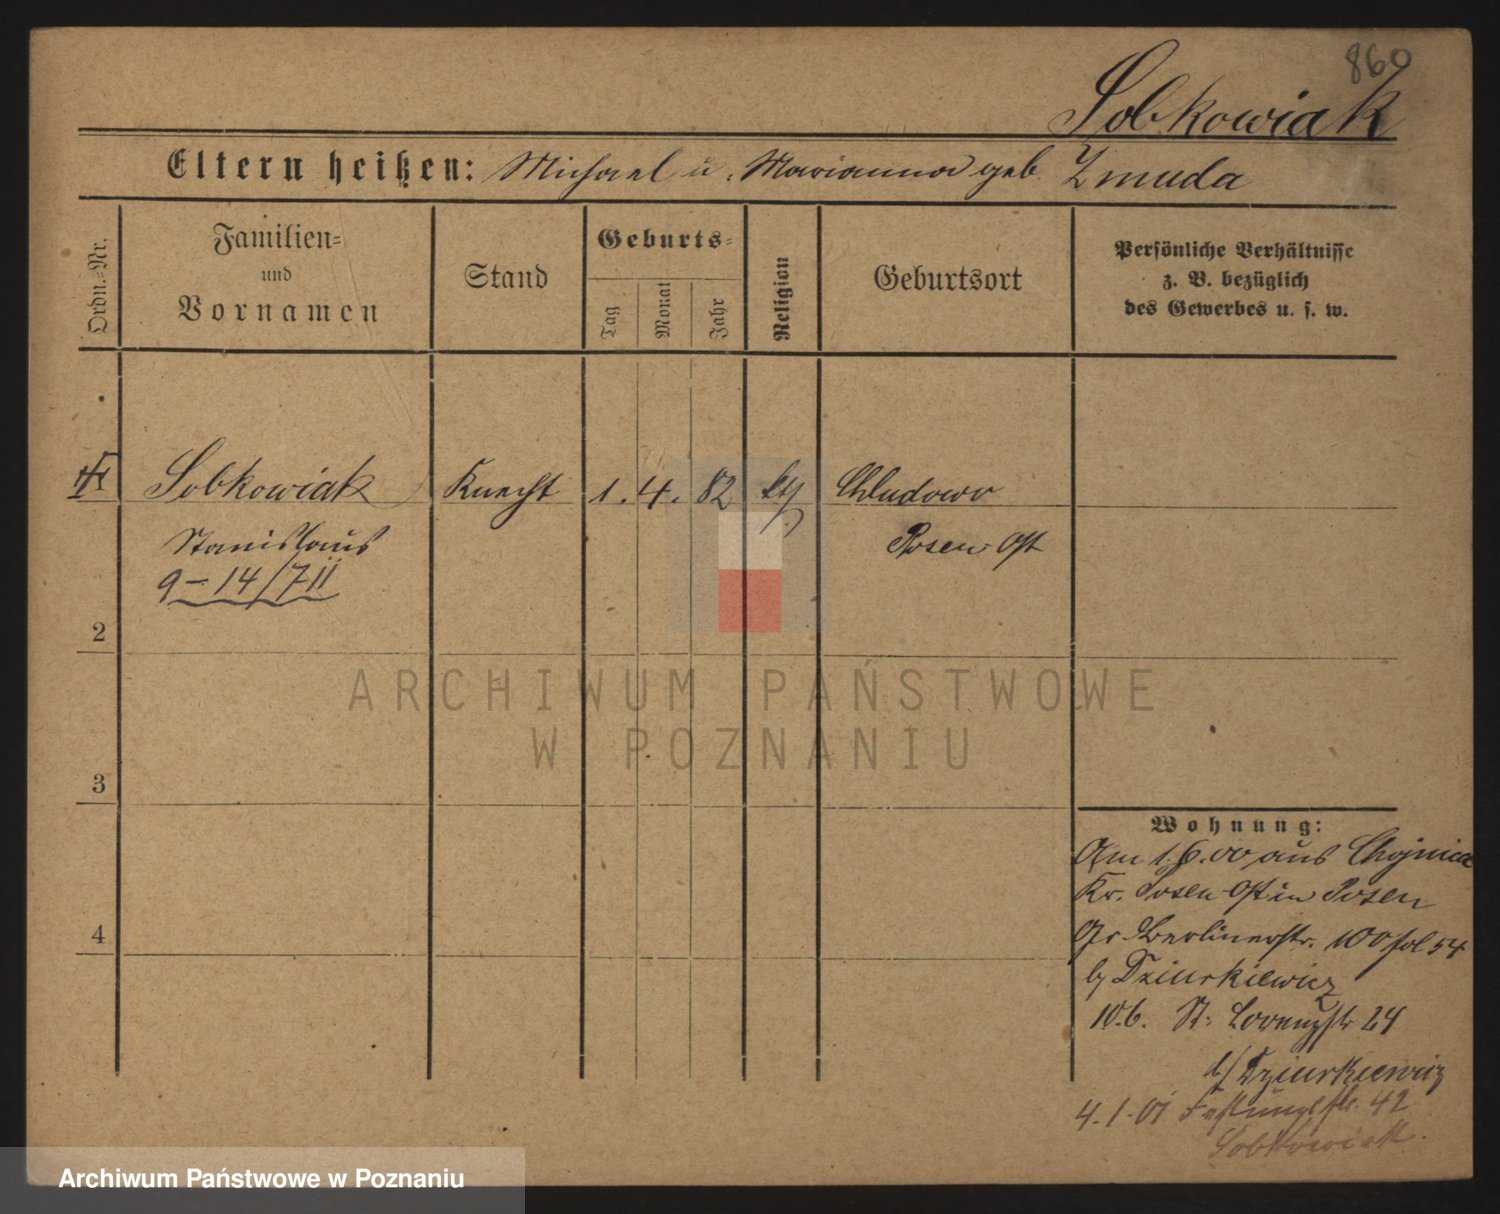 860
Sobkowiak
Eltern heißen: Michael u. Marianna geb. Zmuda
Ordn.-Nr.
Familien-
und
Vornamen
Stand
Geburts-
Tag
Monat
Jahr
Religion
Geburtsort
Persönliche Verhältnisse
z. B. bezüglich
des Gewerbes u. s. w.
Sobkowiak Knecht 1. 4. 82 Chludowo
Stanislaus Posen Ost
9-14/7 11
2
3
4
ARCHIWUM PAŃSTWOWE
W POZNANIU
Wohnung:
Am 1.6.00 aus Chojnica
Kr. Posen Ost in Posen
Gr. Berlinerstr. 100 fol 54
b/ Dziurkiewicz
10.6. St. Lorenzstr 24
b/ Dziurkiewicz
4.1.01 Festungsstr. 42
Sobkowiak.
Archiwum Państwowe w Poznaniu